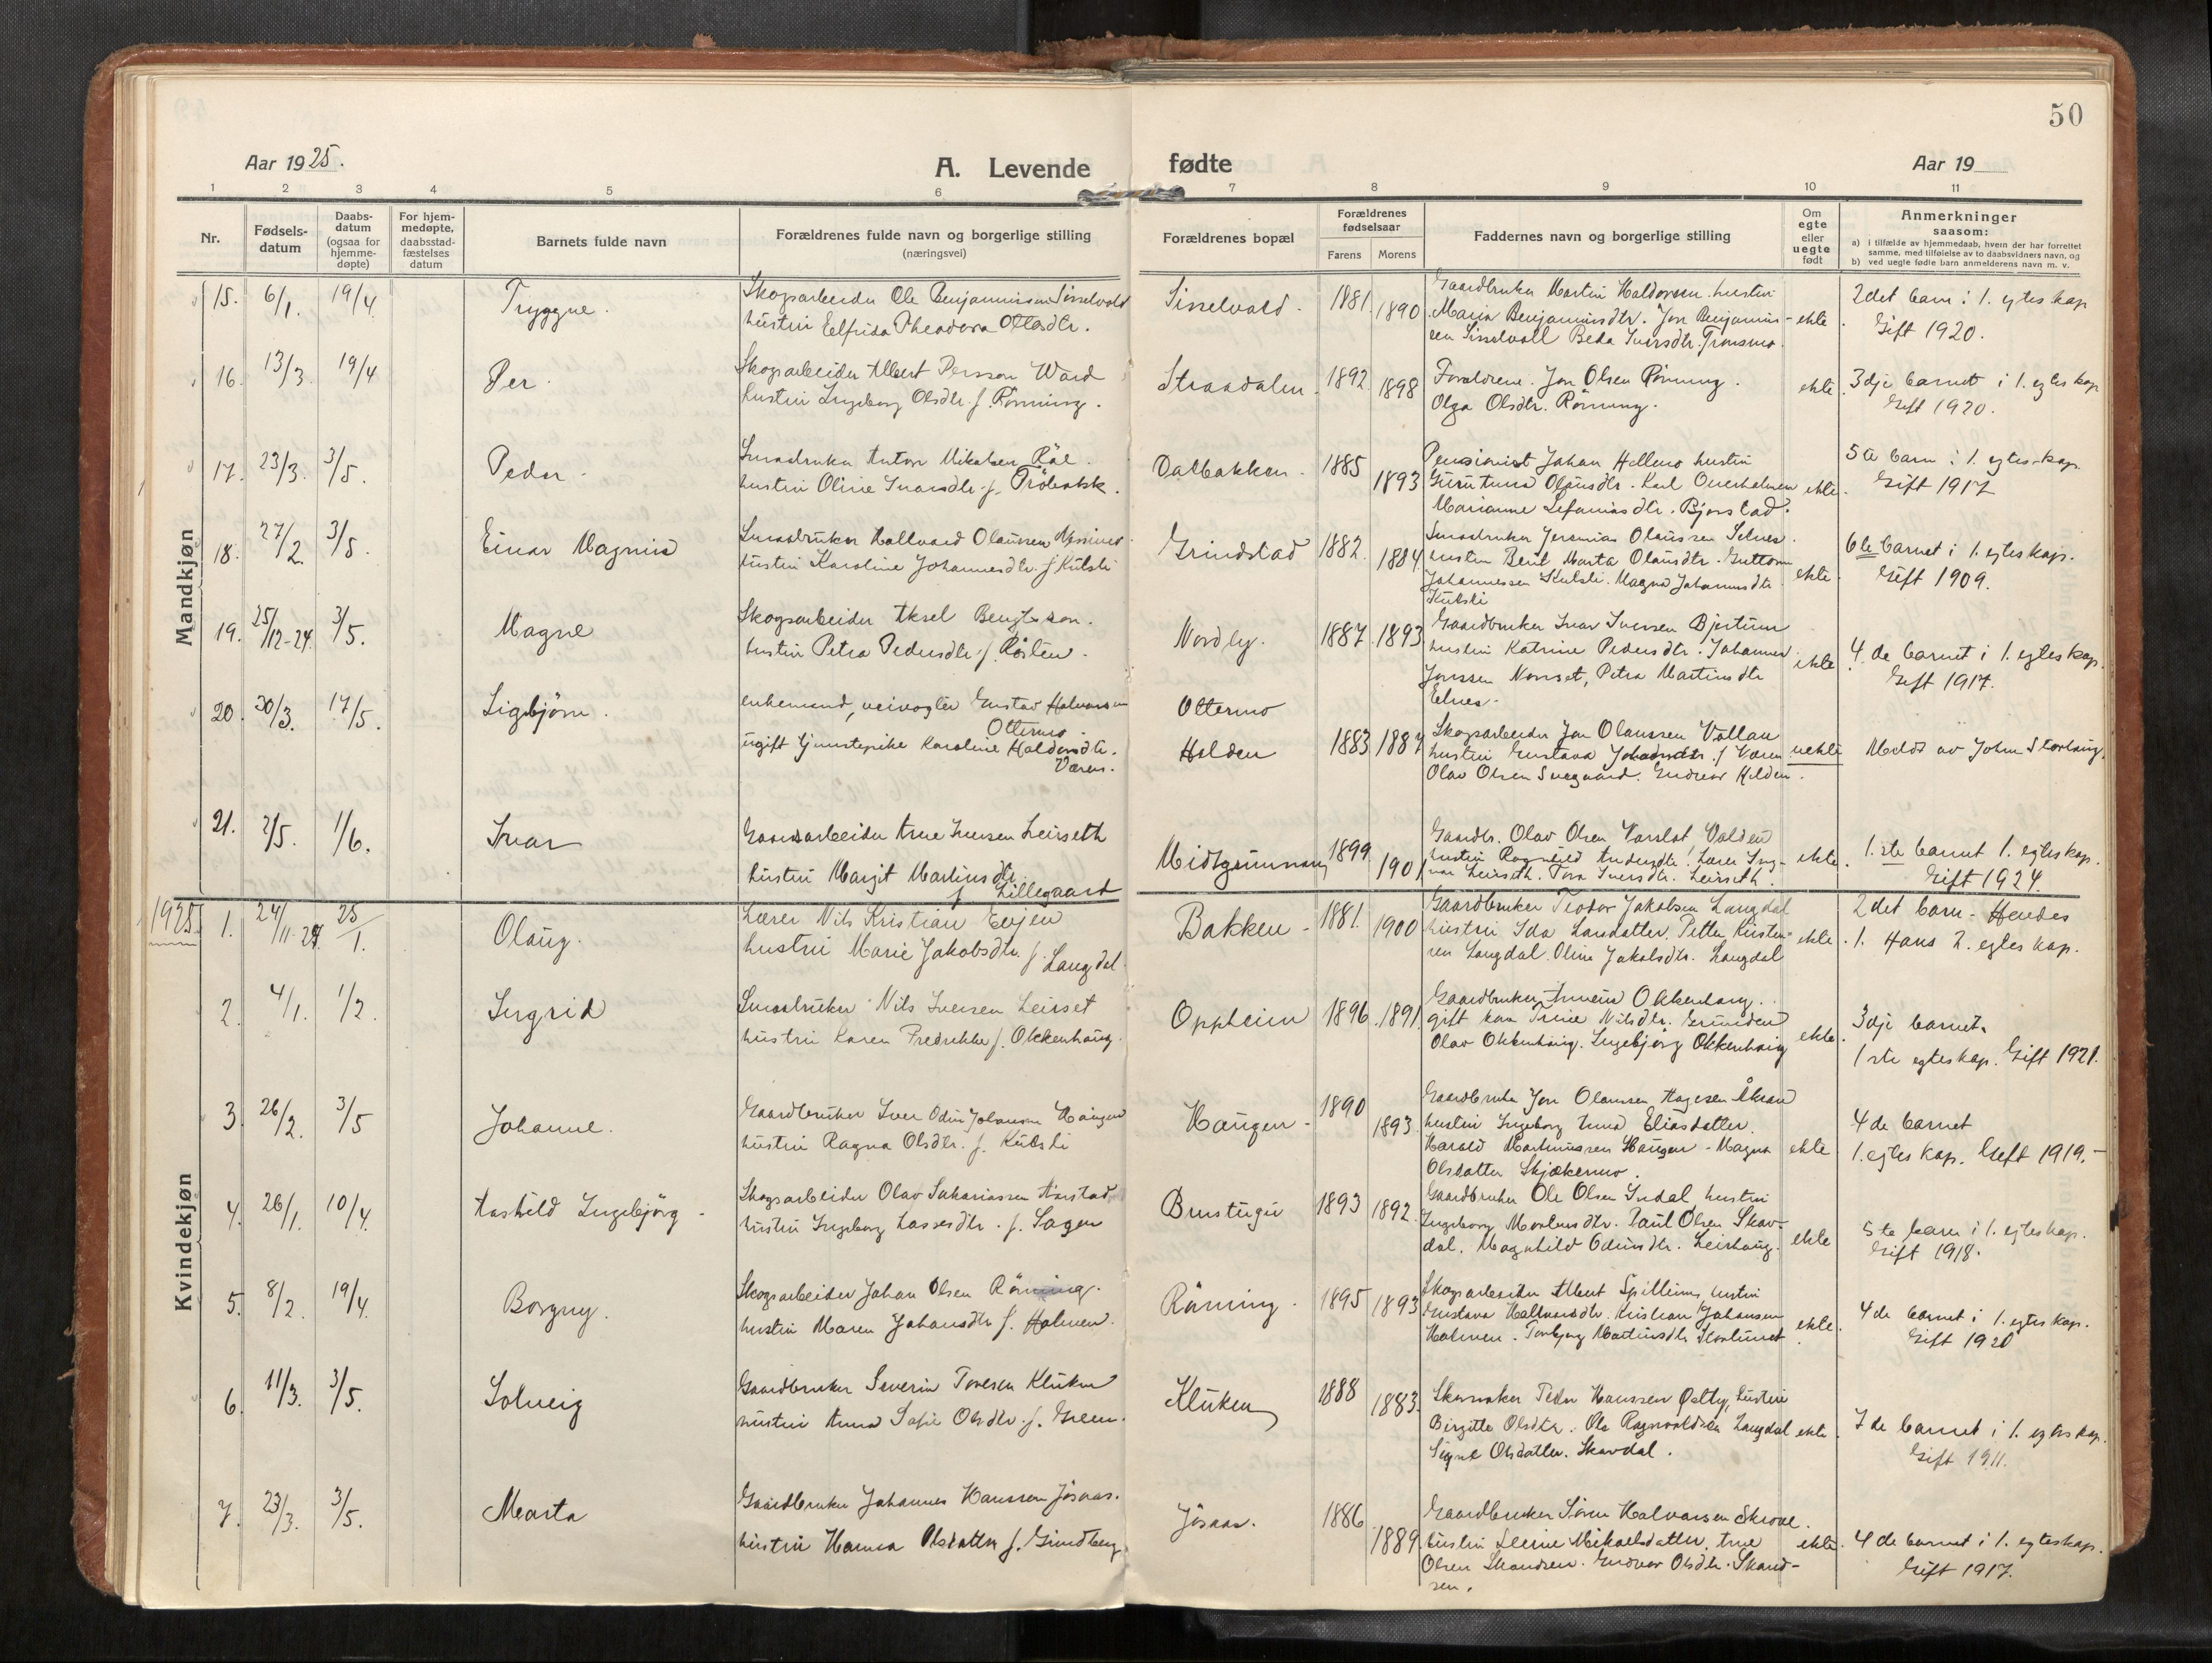 50
Aar 1925.
A. Levende fødte
Aar 19
1 2 3 4 5 6 7 8 9 10 11
Nr.
Fødsels-
datum
Daabs-
datum
(ogsaa for
hjemme-
døpte)
For hjem-
medøpte,
daabsstad-
fæstelses
datum
Barnets fulde navn
Forældrenes fulde navn og borgerlige stilling
(næringsvei)
Forældrenes bopæl
Forældrenes
fødselsaar
Farens Morens
Faddernes navn og borgerlige stilling
Om
egte
eller
uegte
født
Anmerkninger
saasom:
a) i tilfælde av hjemmedaab, hvem der har forrettet
samme, med tilføielse av to daabsvidners navn, og
b) ved uegte fødte barn anmelderens navn m. v.
Mandkjøn
15. 6/1. 19/4 Tryggve.
Skogsarbeider Ole Benjaminsen Sisselvold
hustru Elfrida Theodora Olasdtr.
Sisselvold. 1881. 1890
Gaardbruker Martin Haldorsen. hustru
Maria Benjaminsdtr. Jon Benjamin-
sen Sisselvoll Beda Iversdtr. Tronsmo.
ekte.
2det barn i 1. egteskap
Gift 1920.
16. 13/3. 19/4 Per.
Skogsarbeider Albert Persson Ward
hustru Ingeborg Olsdtr. f. Rönning.
Straadalen. 1892 1898
Forældrene. Jon Olsen Rönning.
Olga Olsdtr. Rönning.
ekte.
3dje barnet i 1. egteskap
Gift 1920.
17. 23/3. 3/5. Peder.
Smaabruker Anton Mikalsen Röe.
hustru Oline Ivarsdtr. f.
Dalbakken. 1885 1893
Pensionist Johan Hellmo hustru
Guru Anna Olausdtr. Karl Overholmen
Marianne Sefaniasdtr. Bjørstad.
ekte.
5te barn i 1. egteskap.
Gift 1917
18. 27/2. 3/5. Einar Magnus
Smaabruker Hallvard Olaussen
hustru Karoline Johannesdtr. f Kulsli
Grindstad 1882. 1884.
Smaabruker Jeremias Olaussen Selnes.
hustru Berit Marta Olausdtr. Guttorm
Johannessen Kulsli. Magna Johannesdtr.
Kulsli
ekte.
6te barnet i 1. egteskap.
Gift 1909.
19. 25/12-24. 3/5. Magne
Skogsarbeider Aksel Bengtson.
hustru Petra Pedersdtr. f. Röslien.
Nordly. 1887. 1893
Gaardbruker Ivar Iversen Bjartun
hustru Katrine Pedersdtr. Johannes
Jonssen Norset, Petra Martinsdtr
Elnes.
ekte.
4.de barnet i 1. egteskap.
Gift 1917.
20. 30/3. 17/5. Sigbjörn.
enkemand, veivogter Gustav Halvorsen
Ottermo.
ugift tjenestepike Karoline Haldorsdtr.
Væren.
Ottermo
Holden 1883 1887
Skogsarbeider Jon Olaussen Vollan
hustru Gustava Johansdtr. f Væren
Olav Olsen Suegaard. Gudrun Holden.
uekte
Meldt av Johan Storhaug.
21. 2/5. 1/6. Ivar
Gaardsarbeider Arne Iversen Leirseth
hustru Margit Martinsdtr.
f Lillegaard
Midtgrunnan 1899. 1901
Gaardbr. Olav Olsen Varslot Valden
hustru Ragnhild Andersdtr. Lærer Ing-
var Leirseth. Tora Iversdtr. Leirseth.
ekte.
1.ste barnet 1. egteskap.
Gift 1924.
Kvindekjøn
1925
1. 24/11-24. 25/1. Olaug.
Lærer Nils Kristian Evjen
hustru Marie Jakobsdtr. f. Langdal.
Bakken - 1881. 1900
Gaardbruker Teodor Jakobsen Langdal
hustru Ida Larsdatter. Petter Kristen-
sen Langdal. Oline Jakobsdtr. Langdal
ekte.
2det barn - Hendes
1. Hans 2. egteskap.
2. 4/1. 1/2. Ingrid
Smaabruker Nils Iversen Leirset
hustru Karen Fredrikke f. Okkenhaug.
Oppheim 1896. 1891.
Gaardbruker Anneus Okkenhaug.
gift kone Trine Nilsdtr. Grunden
Olav Okkenhaug. Ingebjörg Okkenhaug
ekte.
3dje barnet.
1ste egteskap. Gift 1921.
3. 26/2. 3/5 Johanne.
Gaardbruker Iver Odin Johansen Haugen
hustru Ragna Olsdtr. f. Kulsli
Haugen - 1890 1893.
Gaardbruker Jon Olaussen Aagesen Åkran
hustru Ingeborg Anna Eliasdatter.
Harald Martinussen Haugen - Magna
Olsdatter Skjækermo.
ekte
4de barnet
1. egteskap. Gift 1919.-
4. 26/1. 10/4. Aashild Ingebjörg -
Skogsarbeider Olav Sakariassen Aarstad
hustru Ingeborg Lassesdtr. f. Sagen
Brustugu 1893 1892.
Gaardbruker Ole Olsen Indal hustru
Ingeborg Martinsdtr. Paul Olsen Skav-
dal. Magnhild Odinsdtr. Leirhaug.
ekte
5te barn i 1. egteskap.
Gift 1918.
5. 8/2. 19/4. Borgny.
Skogsarbeider Johan Olsen Rönning.
hustru Maren Johansdtr f. Holmen.
Rönning. 1895 1893
Skogsarbeider Albert Spillum, hustru
Gustava Hallvarsdtr. Kristian Johansen
Holmen. Torbjørg Martinsdtr
ekte.
4de barnet i 1. egteskap.
Gift 1920
6. 11/3. 3/5. Solveig
Gaardbruker Severin Toresen Kluken
hustru Anna Sofie Olsdtr. f. Green.
Kluken 1888 1883.
Skomaker Peder Hanssen Østby, hustru
Birgitte Olsdtr. Ole Ragnvaldsen Langdal
Signe Olsdatter. Skavdal.
ekte.
7de barnet i 1. egteskap.
Gift 1911.
7. 23/3. 3/5. Marta
Gaardbruker Johannes Hanssen Jösaas.
hustru Hanna Olsdatter f. Grindberg.
Jösaas. 1886 1889
Gaardbruker Sören Halvorsen Skrove.
hustru Serine Mikaelsdatter, Arne
Olsen Skandsen. Gudrun Olsdtr. Skand-
sen.
ekte.
4de barnet i 1. egteskap.
Gift 1917.